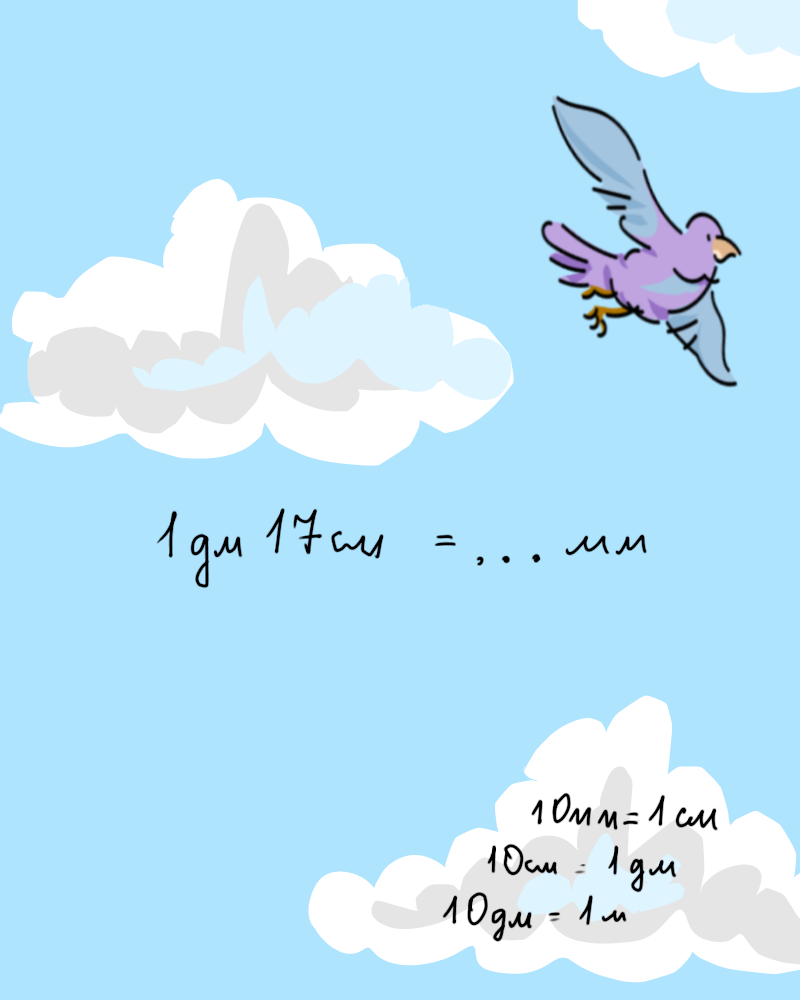 1 дм 17 см = ... мм
10 мм = 1 см
10 см = 1 дм
10 дм = 1 м